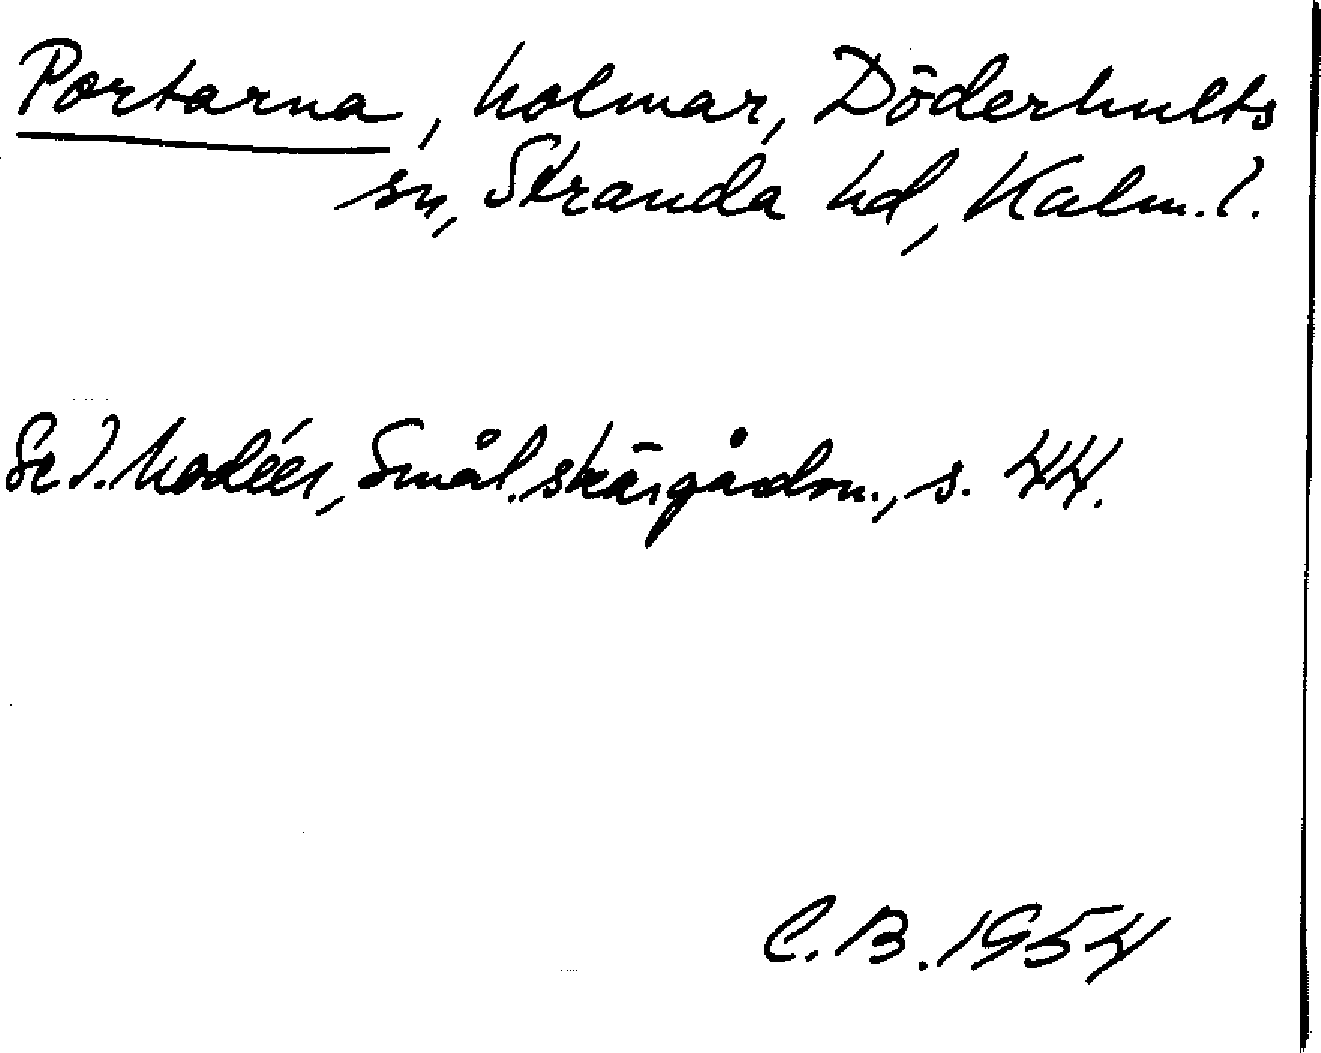 Portarna, holmar, Döderhults
sn, Stranda hd, Kalm. l.
Se I. Modéer, Smål. skärgårdsn., s. 44.
C. B. 1954